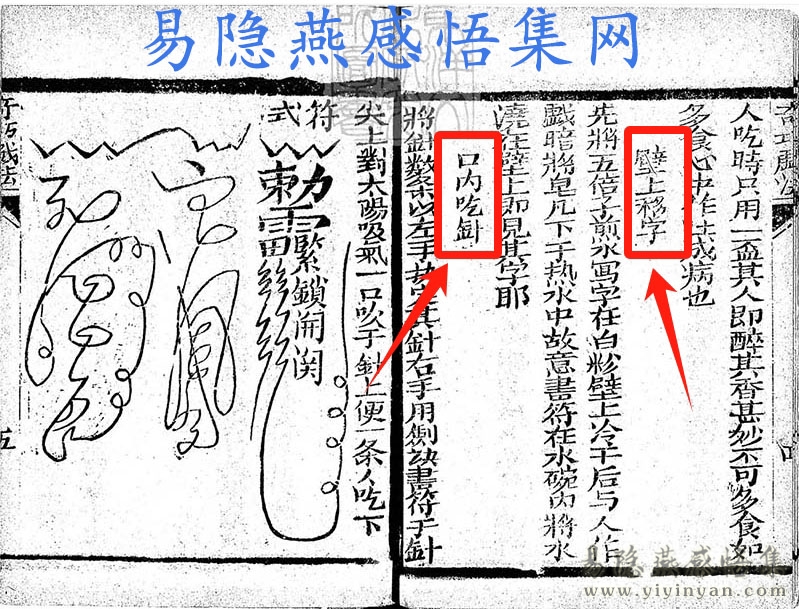 易隐燕感悟集网
人吃時只用一盃其人即醉其香甚妙不可多食如
多食心中作吐成病也
壁上移字
先將五倍子煎水寫字在白粉壁上冷干后与人作
戲暗將皂凡下于热水中故意書符在水碗內將水
澆在壁上即見其字耶
口内吃針
將針數条以左手執定其針右手用劍訣書符于針
尖上對太陽吸氣一口吹于針上便一条人吃下
符式
勅雷緊鎖開関
五
易隐燕感悟集
www.yiyinyan.com